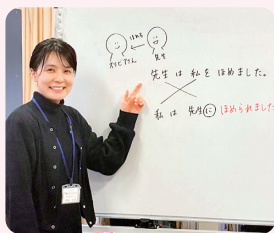 ほめる
オリビアさん 先生
先生 は 私 を ほめました。
私 は 先生 に ほめられました